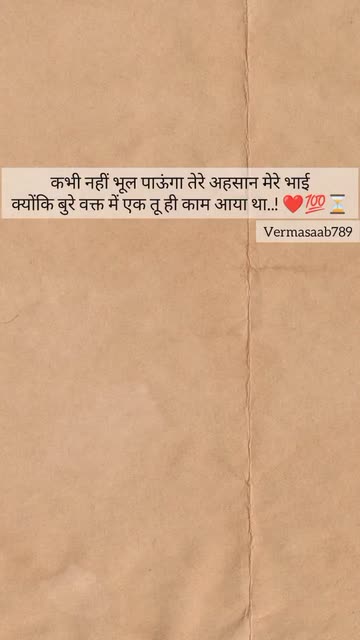 कभी नहीं भूल पाऊंगा तेरे अहसान मेरे भाई
क्योंकि बुरे वक्त में एक तू ही काम आया था..! ❤️💯⏳
Vermasaab789